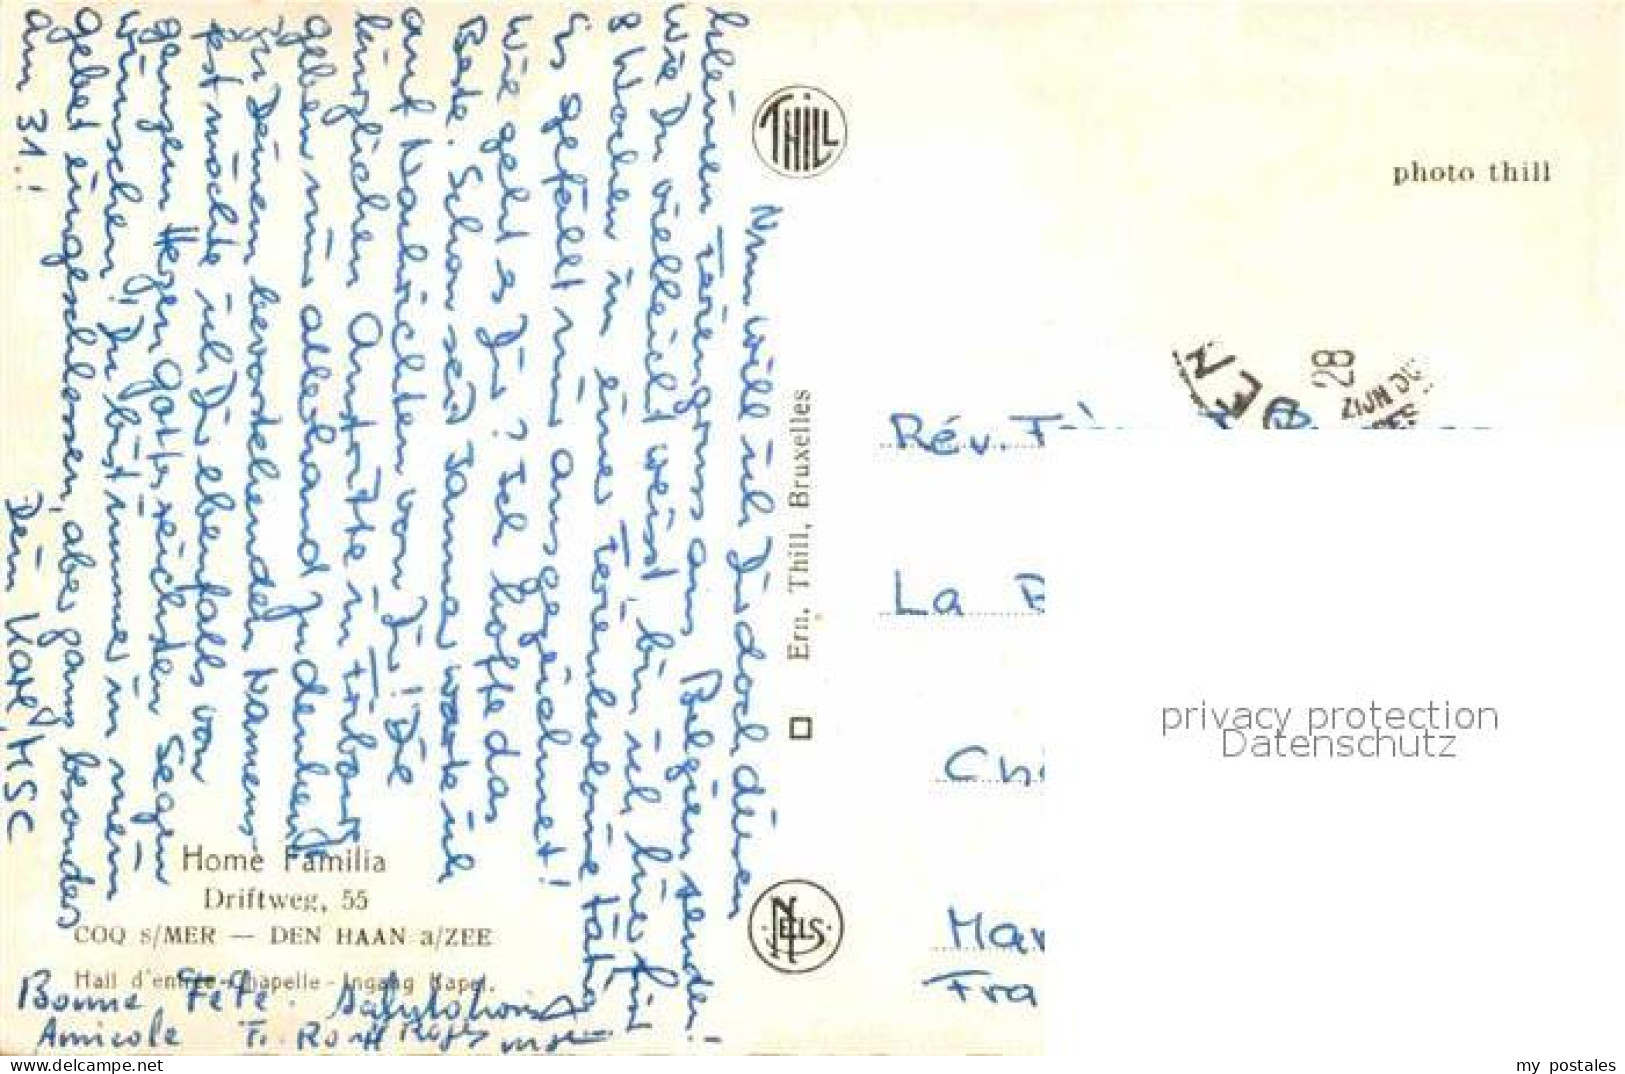 Nun will ich Dir doch diesen
kleinen Feriengruss aus Belgien senden.
Wie Du vielleicht weisst, bin ich hier für
8 Wochen in einer Ferienkolonie tätig.
Es gefällt mir ausgezeichnet!
Wie geht es Dir? Ich hoffe das
Beste. Schon seit Januar warte ich
auf Nachrichten von Dir! Die
kürzlichen Austritte in
geben mir allerhand zu denken!
Zu Deinem bevorstehenden Namens-
fest möchte ich Dir ebenfalls von
ganzem Herzen Gottes reichsten Segen
wünschen! Du bist immer in mein
Gebet eingeschlossen, aber ganz besonders
am 31.!
Dein Karl, MSC
Home Familia
Driftweg, 55
COQ s/MER — DEN HAAN a/ZEE
Hall d'entrée-Chapelle - Ingang Kapel.
Bonne Fête. Salutations
Amicale F. Roger
THILL
Ern. Thill, Bruxelles
NELS
photo thill
28
Rév.
La
Fra
privacy protection
Datenschutz
my postales